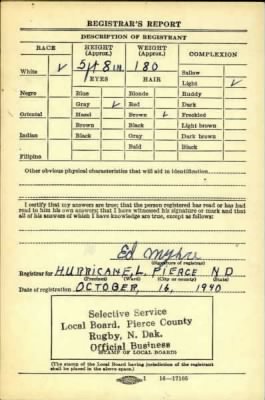 REGISTRAR'S REPORT
DESCRIPTION OF REGISTRANT
RACE HEIGHT (Approx.) WEIGHT (Approx.) COMPLEXION
White ✓ 5 ft 8 in 180 Sallow
EYES HAIR Light ✓
Negro Blue Blonde Ruddy
Gray ✓ Red Dark
Oriental Hazel Brown ✓ Freckled
Brown Black Light brown
Indian Black Gray Dark brown
Bald Black
Filipino
Other obvious physical characteristics that will aid in identification
I certify that my answers are true; that the person registered has read or has had
read to him his own answers; that I have witnessed his signature or mark and that
all of his answers of which I have knowledge are true, except as follows:
Ed
(Signature of registrar)
Registrar for HURRICANE L. PIERCE N D
(Precinct) (Ward) (City or county) (State)
Date of registration OCTOBER, 16, 1940
Selective Service
Local Board, Pierce County
Rugby, N. Dak.
Official Business
(STAMP OF LOCAL BOARD)
(The stamp of the Local Board having jurisdiction of the registrant
shall be placed in the above space.)
1 16—17105